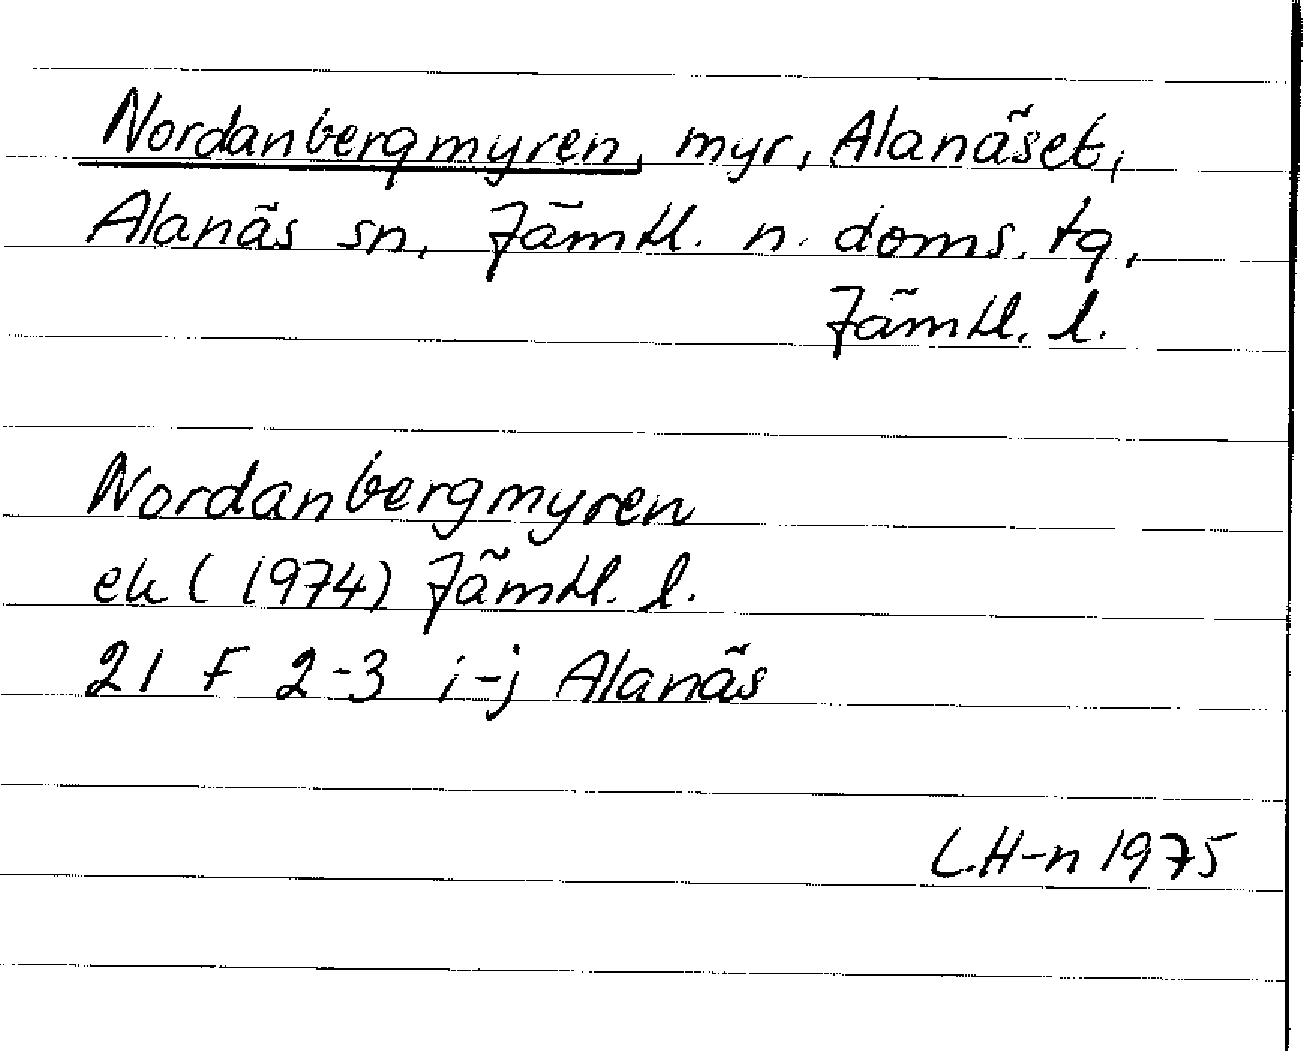 Nordanbergmyren, myr, Alanäset,
Alanäs sn, Jämtl. n. doms. tg,
Jämtl. l.
Nordanbergmyren
ek (1974) Jämtl. l.
21 F 2-3 i-j Alanäs
L.H-n 1975